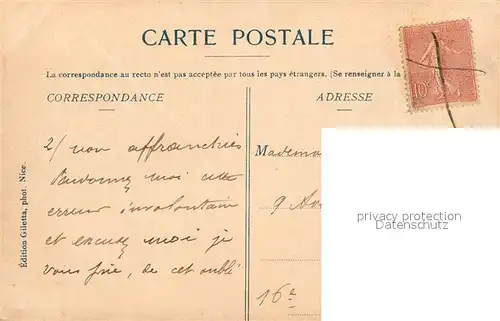 CARTE POSTALE
La correspondance au recto n'est pas acceptée par tous les pays étrangers. (Se renseigner à la
CORRESPONDANCE
ADRESSE
2/ non affranchies
Pardonnez moi cette
erreur involontaire
et excusez moi je
vous prie, de cet oubli
Madem
9 Av
16e
Édition Giletta, phot. Nice.
10c
privacy protection
Datenschutz